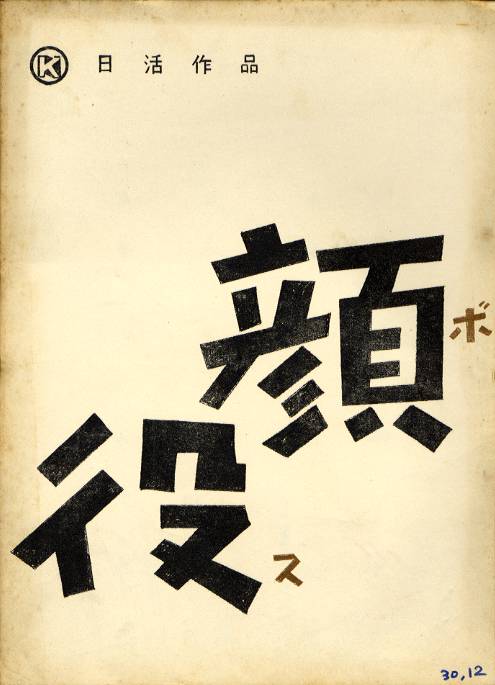 K 日活作品
顔ボ
役ス
30,12